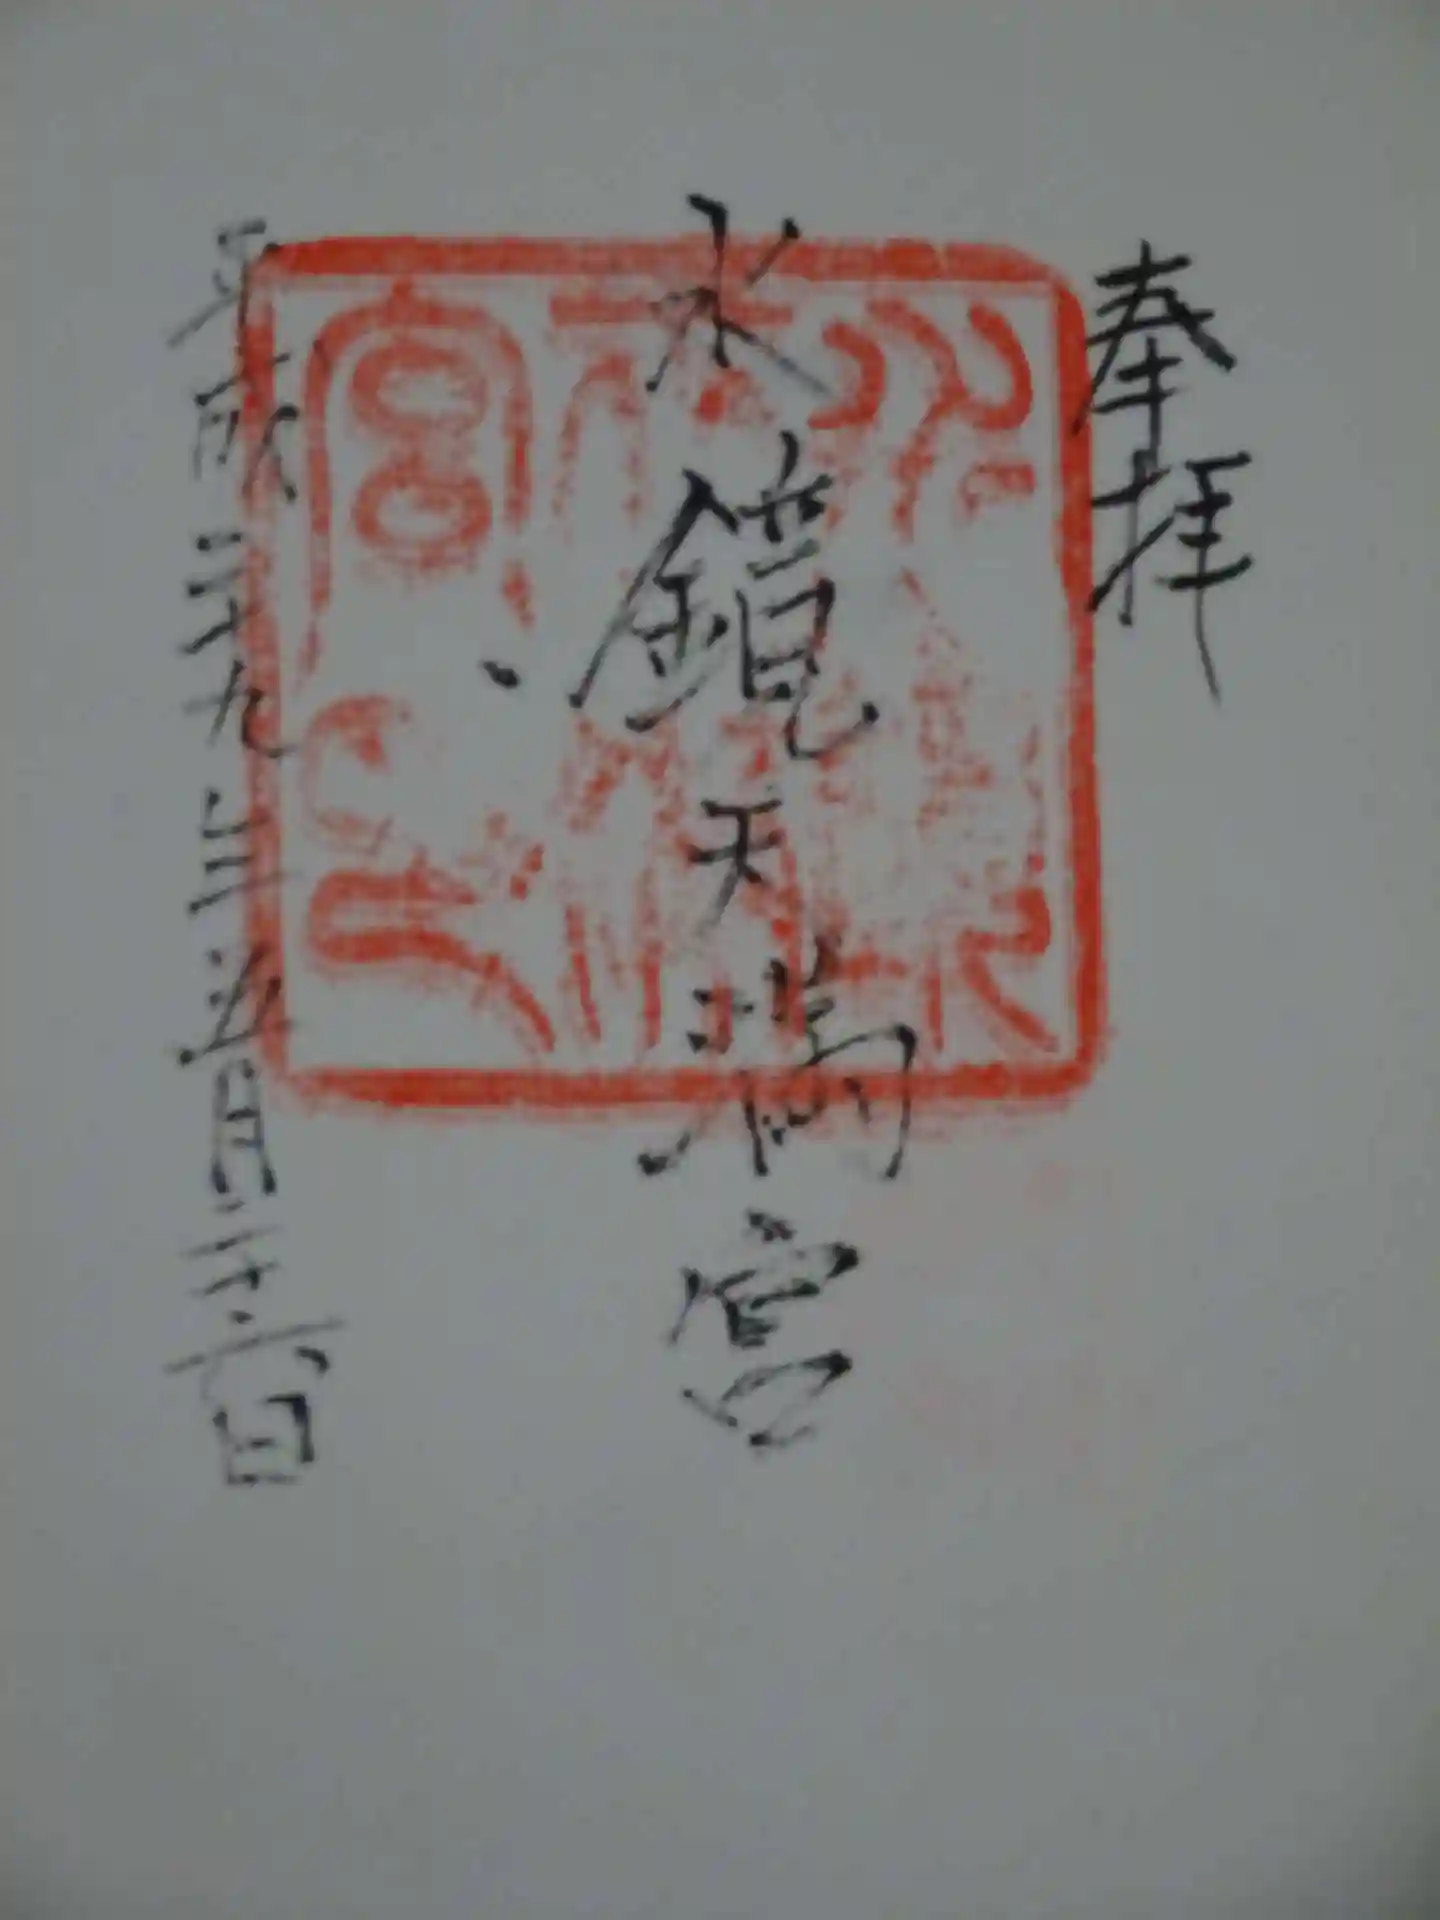 奉拝
水鏡天満宮
平成二十九年五月二十六日